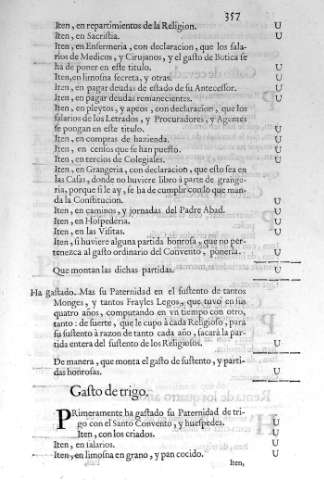 357
Iten, en repartimientos de la Religion. U
Iten, en Sacristia. U
Iten, en Enfermeria, con declaracion, que los sala-
rios de Medicos, y Cirujanos, y el gasto de Botica se
ha de poner en este titulo. U
Iten, en limosna secreta, y otras. U
Iten, en pagar deudas de estado de su Antecessor. U
Iten, en pagar deudas remanecientes. U
Iten, en pleytos, y apeos, con declaracion, que los
salarios de los Letrados, y Procuradores, y Agentes
se pongan en este titulo. U
Iten, en compras de hazienda. U
Iten, en censos que se han puesto. U
Iten, en tercios de Colegiales. U
Iten, en Grangeria, con declaracion, que esto sea en
las Casas, donde no huviere libro à parte de grange-
ria, porque si le ay, se ha de cumplir con lo que man-
da la Constitucion. U
Iten, en caminos, y jornadas del Padre Abad. U
Iten, en Hospederia. U
Iten, en las Visitas. U
Iten, si huviere alguna partida honrosa, que no per-
tenezca al gasto ordinario del Convento, ponerla. U
Que montan las dichas partidas. U
Ha gastado. Mas su Paternidad en el sustento de tantos
Monges, y tantos Frayles Legos, que tuvo en sus
quatro años, computando en vn tiempo con otro,
tanto: de suerte, que le cupo à cada Religioso, para
su sustento à razon de tanto cada año, sacarà la par-
tida entera del sustento de los Religiosos. U
De manera, que monta el gasto de sustento, y parti-
das honrosas. U
Gasto de trigo.
PRimeramente ha gastado su Paternidad de tri-
go con el Santo Convento, y huespedes. U
Iten, con los criados. U
Iten, en salarios. U
Iten, en limosna en grano, y pan cocido. U
Iten,